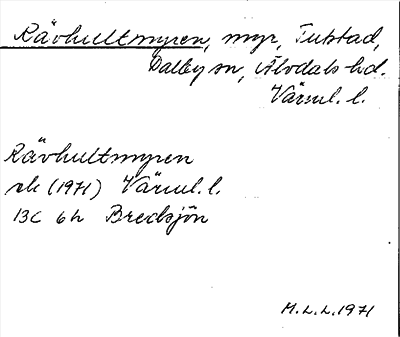 Rävhultmyren, myr, Tutstad,
Dalby sn, Älvdals hd.
Värml. l.
Rävhultmyren
ek (1971) Värml. l.
13C 6h Bredsjön
M.L.L. 1971